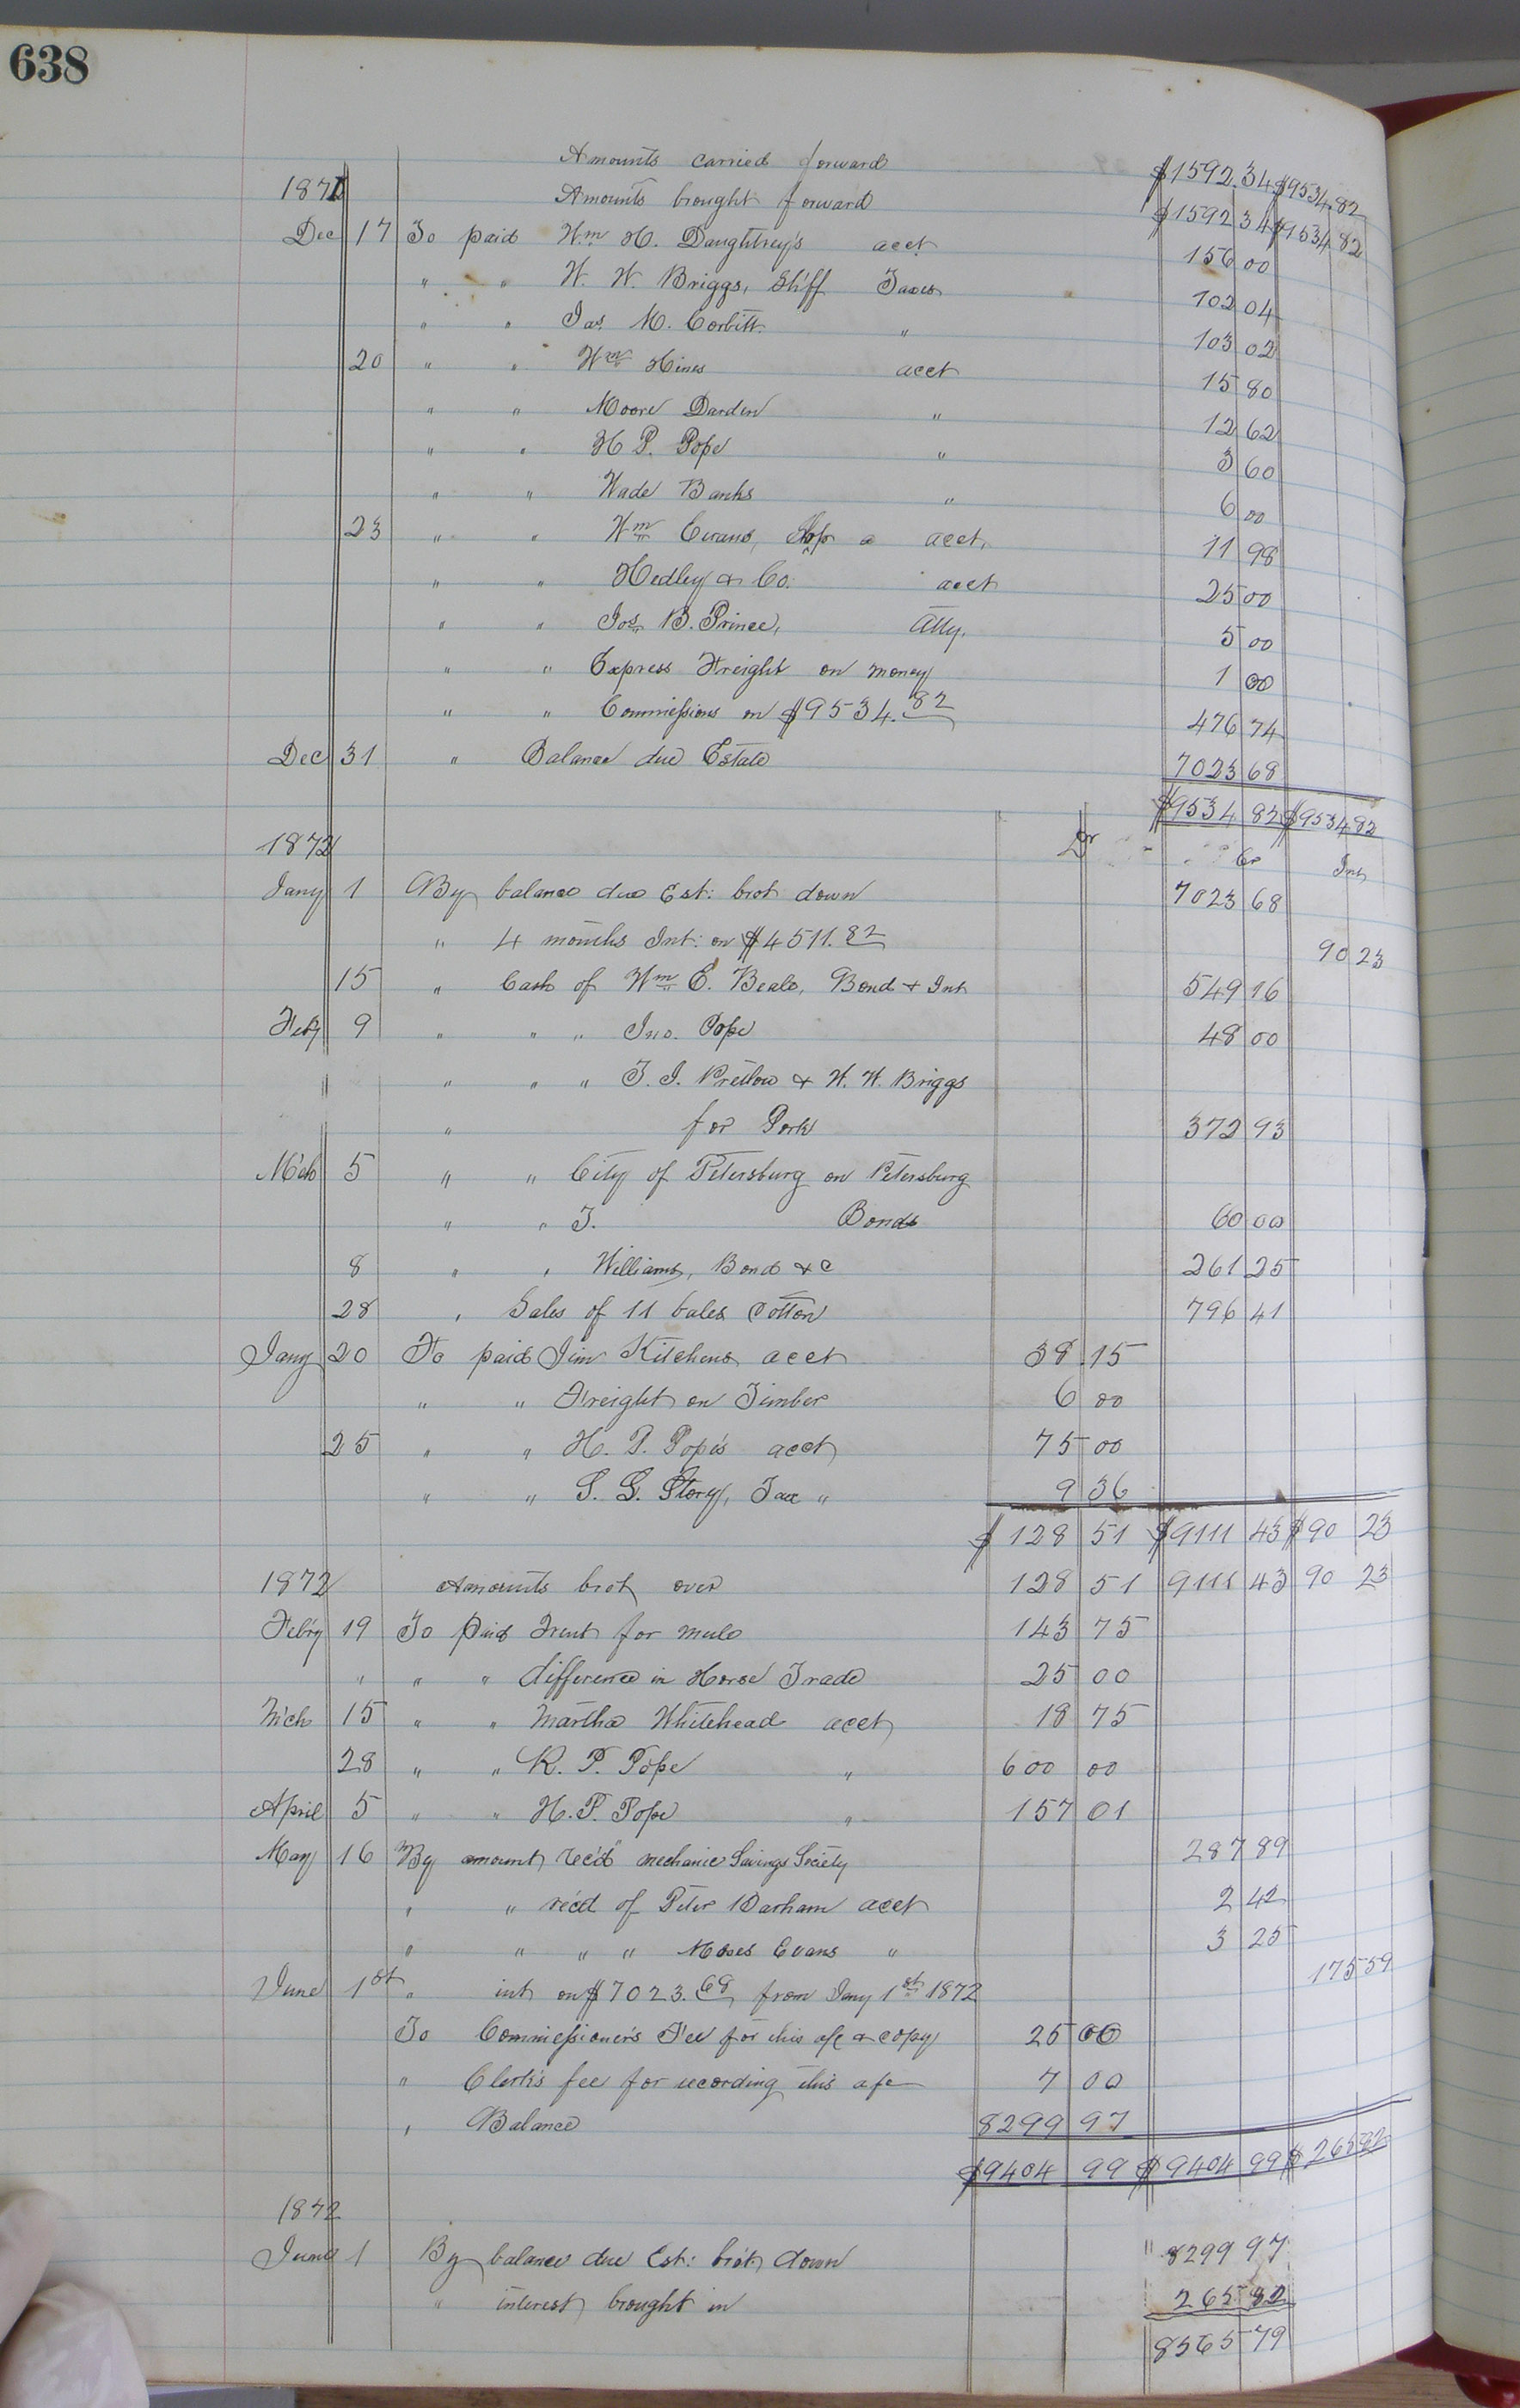 638
Amounts carried forward $1592.34 $9534.82
1871 Amounts brought forward $1592 34 $9534 82
Dec 17 To paid Wm H. Daughtrey's acct 156 00
" " W. W. Briggs, Shff Taxes 102 04
" " Jas. M. Corbitt " 103 02
20 " " Wm Hines acct 15 80
" " Moore Darden " 12 62
" " H P. Pope " 3 60
" " Wade Banks " 6 00
23 " " Wm Evans, acct, 11 98
" " Hedley & Co. acct 25 00
" " Jos. B. Prince, Atty. 5 00
" " Express Freight on money 1 00
" " Commissions on $9534.82 476 74
Dec 31 " Balance due Estate 7023 68
$9534 82 $9534 82
1872 Dr Cr Int
Jany 1 By balance due Est: brot down 7023 68
" 4 months Int: on $4511.82 90 23
15 " Cash of Wm E. Beale, Bond & Int 549 16
Feby 9 " " " Jno. Pope 48 00
" " " T. J. Pretlow & W. W. Briggs
" for Pork 372 93
Mch 5 " " City of Petersburg on Petersburg
" " T. Bonds 60 00
8 " " Williams, Bond &c 261 25
28 " Sales of 11 bales Cotton 796 41
Jany 20 To paid Jim Kitchens acct 38 15
" " Freight on Timber 6 00
25 " " H. P. Pope's acct 75 00
" " S. G. Story, Tax " 9 36
$ 128 51 $9111 43 $90 23
1872 Amounts brot over 128 51 9111 43 90 23
Febry 19 To paid Trent for mule 143 75
" " " difference in Horse Trade 25 00
Mch 15 " " Martha Whitehead acct 18 75
28 " " R. P. Pope " 600 00
April 5 " " H. P. Pope " 157 01
May 16 By amount rec'd mechanic Savings Society 287 89
" " rec'd of Peter Darham acct 2 42
" " " " Moses Evans " 3 25
June 1st " int on $7023.68 from Jany 1st 1872 175 59
To Commissioner's Fee for this a/c & copy 25 00
" Clerk's fee for recording this a/c 7 00
" Balance 8299 97
$9404 99 $9404 99 $265 82
1872
June 1 By balance due Est: brot down " 8299 97
" interest brought in 265 82
8565 79